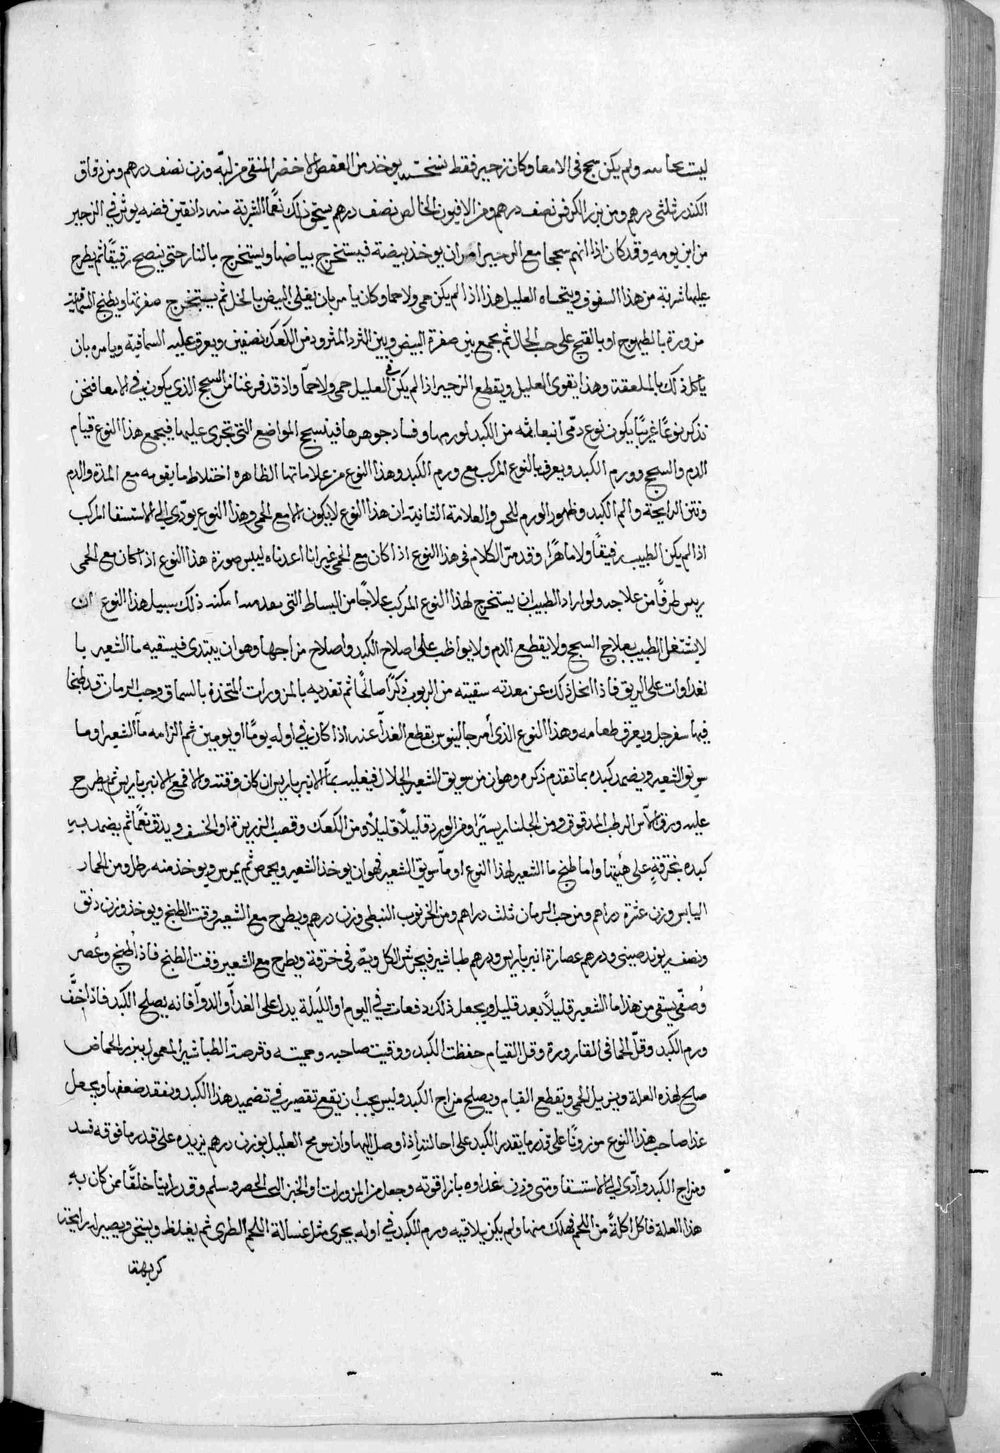 ولم يكن سحج في الامعا وكان زحير فقط يوخذ من العفص الاخضر المنقى من لبه وزن نصف درهم ومن دقاق
الكندر ثلثى درهم ومن بزر الكرفس نصف درهم ومن الافيون الخالص نصف درهم يسحق ذلك نعمًا الشربة منه دانقين فضه يوثر في الزحير
من ابن يومه وقد كان اذا اتهم سحجا مع الزحير امر ان يوخذ بيضة فيستخرج بياضها ويستخرج بالنار حتى ينضج رقيقًا ثم يطرح
عليها شربة من هذا السفوف ويتحساه العليل هذا اذا لم يكن حمى ولا حما وكان يامر بان يغلى البيض بالخل ثم يستخرج صفرته ويطبخ السماقية
مزورة بالطيهوج او بالقبج على حسب الحال ثم يجمع بين صفرة البيض وبين الثرد المثرود من الكعك نصفين ويعرق عليه السماقية ويامره بان
ياكل ذلك بالملعقة وهذا يقوى العليل ويقطع الزحير اذا لم يكن في العليل حمى ولا حمّا واذ قد فرغنا من السحج الذي يكون في الامعا فنحن
نذكر نوعًا غريبًا يكون نوع دمّى انبعاثه من الكبد لورمها وفساد جوهرها فينسحج المواضع التي تجرى عليها فيجمع هذا النوع قيام
الدم والسحج وورم الكبد ويعرف بالنوع المركب مع ورم الكبد وهذا النوع من علاماتها الظاهره اختلاط ما يقومه مع المدة والدم
ونتن الرايحة والم الكبد وظهور الورم للحس والعلامة الثانية ان هذا النوع لا يكون الا مع الحمى وهذا النوع يودّى الى الاستسقا المركب
اذا لم يكن الطبيب رفيقًا ولا ماهرًا وقد مرّ الكلام في هذا النوع اذا كان مع الحمى غير انا اعدناه ليس صورة هذا النوع اذا كان مع الحمى
طرفًا من علاجه ولو اراد الطبيب ان يستخرج لهذا النوع المركب علاجًا من البسائط التى ذلك سبيل هذا النوع ان
لا يشتغل الطبيب بعلاج السحج ولا يقطع الدم ولا يواظب على اصلاح الكبد واصلاح مزاجها وهو ان يبتدى فيسقيه ما الشعير با
لغداوات على الريق فاذا انحل ذلك عن معدته سقيته من الربوب ذكرًا صالحًا ثم تغذيه بالمزورات المتخذة بالسماق وحب الرمان قد طبخا
فيها سفرجل ويعرق طعامه وهذا النوع الذى أمر جالينوس بقطع الغدآ عنه اذا كان في اوله يومًا او يومين ثم الزامه مآ الشعير او ما
سويق الشعير ويضمد كبده بما تقدم ذكره وهو ان من سويق الشعير الجلال فيغليه بمآ الانبرباريس ان كان وقته والا فمع الانبرباريس ثم يطرح
عليه ورق الآس الرطب المدقوق ومن الجلنار يسيرًا ومن الورد قليلًا قليلًا ومن الكعك وقصب الذريرة او الخسف ويدق نعمًا ثم يضمد به
كبده بخرقةٍ على هيئتها واما طبخ ما الشعير لهذا النوع او مآ سويق الشعير فهو ان يوخذ الشعير ويحمص ثم يمرس ويوخذ منه رطل ومن الحماز
اليابس وزن عشرة دراهم ومن حب الرمان ثلث دراهم ومن الخرنوب النبطى وزن درهم ويطرح مع الشعير وقت الطبخ ويوخذ وزن دنق
ونصف ريوند صينى ودرهم عصارة انبرباريس ودرهم طباشير فيجرش الكل ويصّر في خرقة ويطرح مع الشعير وقت الطبخ فاذا طبخ وعُصر
وُصفّى يسقى من هذا ما الشعير قليلًا بعد قليل ويجعل ذلك دفعات في اليوم والليلة يدل على الغدآ والدوآ فانه يصلح الكبد فاذا خفّ
ورم الكبد وقلّ الحما في القارورة وقل القيام حفظت الكبد ووقيت صاحبه وحميته وقرصة الطباشير المعمول ببزر الحماض
صالح لهذه العلة ويزيل الحمى ويقطع القيام ويصلح مزاج الكبد وليس يجب ان يقع تقصير في تضميد هذا الكبد ونفقد ضعفها ويجعل
غذا صاحب هذا النوع موزونًا على قدر ما يقدر الكبد على احالته اذا وصل اليها وان سومح العليل بوزن درهم يزيده على قدر ما فوقه فسد
ومزاج الكبد وادّى الى الاستسقا ومتى وزن غداوه بازا قوته وجعل من المزورات او الخبز البحت الحصر وسلم وقد راينا خلقًا ممن كان بهِ
هذا العلة فاكل اكلةً من اللحم فهلك منها ولم يكن يلافيه ورم الكبد في اوله يجرى مثل غسالة اللحم الطرى ثم يغلظ وينتن ويصير له رايحة
كريهة